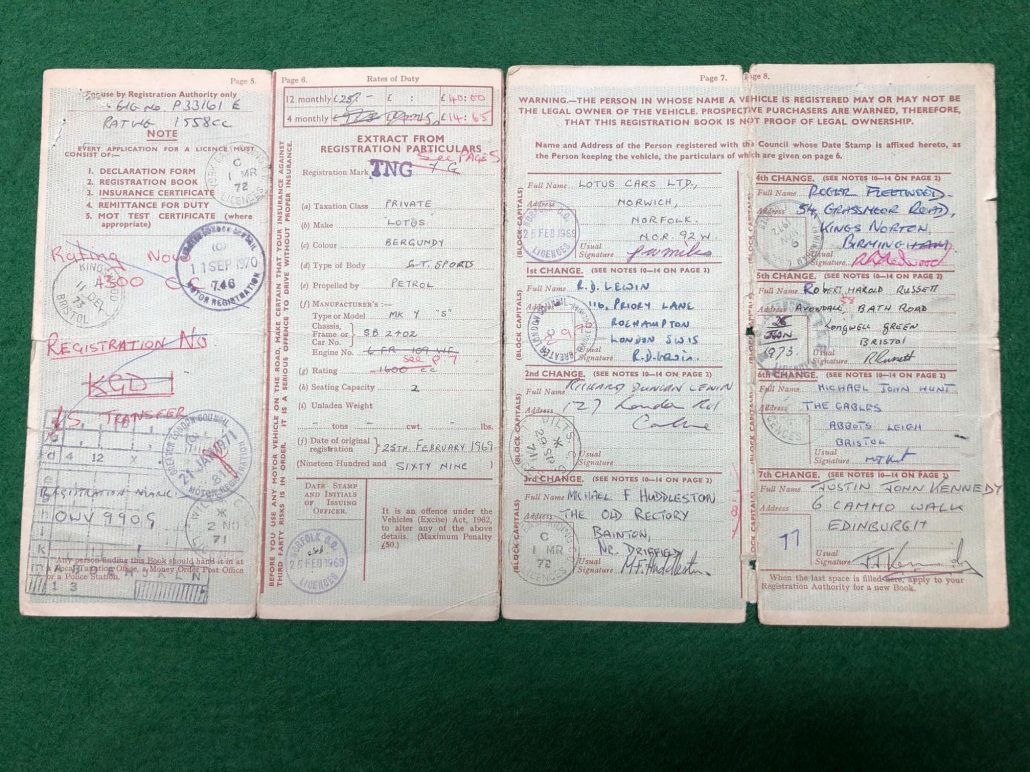 Page 5.
For use by Registration Authority only
ENG No. P33161 E
RATING 1558cc
NOTE
EVERY APPLICATION FOR A LICENCE MUST
CONSIST OF:—
1. DECLARATION FORM
2. REGISTRATION BOOK
3. INSURANCE CERTIFICATE
4. REMITTANCE FOR DUTY
5. MOT TEST CERTIFICATE (where
appropriate)
C
1 MR
72
LICENCES
Rating Now
4300 CC
(C)
11 SEP 1970
746
MOTOR REGISTRATION
11 DE
73
BRISTOL
REGISTRATION No
KGD 1
IS TRANSFER
21 JAN 1971
d 4 12 x
REGISTRATION MARK
OWV 990G
WILTS
2 NO
71
Any person finding this Book should hand it in at
a Local Taxation Office, a Money Order Post Office
or a Police Station.
13
Page 6.
Rates of Duty
12 monthly £25/- £ : £40:00
4 monthly £14:65
EXTRACT FROM
REGISTRATION PARTICULARS
See PAGE 5
Registration Mark TNG 7 G
(a) Taxation Class PRIVATE
(b) Make LOTUS
(c) Colour BERGUNDY
(d) Type of Body G.T. SPORTS
(e) Propelled by PETROL
(f) MANUFACTURER'S:—
Type or Model MK 4 "S"
Chassis,
Frame or
Car No. SB 2402
Engine No.
SEE P 7
(g) Rating 1600 cc
(h) Seating Capacity 2
(i) Unladen Weight
- tons - cwt. - lbs.
(j) Date of original
registration 25TH FEBRUARY 1969
(Nineteen Hundred and SIXTY NINE)
DATE STAMP
AND INITIALS OF
ISSUING OFFICER.
It is an offence under the
Vehicles (Excise) Act, 1962,
to alter any of the above
details. (Maximum Penalty
£50.)
NORFOLK C.C.
25 FEB 1969
LICENCES
BEFORE YOU USE ANY MOTOR VEHICLE ON THE ROAD, MAKE CERTAIN THAT YOUR INSURANCE AGAINST
THIRD PARTY RISKS IS IN ORDER. IT IS A SERIOUS OFFENCE TO DRIVE WITHOUT PROPER INSURANCE.
Page 7.
Page 8.
WARNING.—THE PERSON IN WHOSE NAME A VEHICLE IS REGISTERED MAY OR MAY NOT BE
THE LEGAL OWNER OF THE VEHICLE. PROSPECTIVE PURCHASERS ARE WARNED, THEREFORE,
THAT THIS REGISTRATION BOOK IS NOT PROOF OF LEGAL OWNERSHIP.
Name and Address of the Person registered with the Council whose Date Stamp is affixed hereto, as
the Person keeping the vehicle, the particulars of which are given on page 6.
(BLOCK CAPITALS)
Full Name LOTUS CARS LTD.,
Address NORWICH,
NORFOLK.
NOR 92W
Usual
Signature
NORFOLK C.C.
25 FEB 1969
LICENCES
1st CHANGE. (SEE NOTES 10—14 ON PAGE 2)
(BLOCK CAPITALS)
Full Name R.D. LEWIN
Address 116, PRIORY LANE
ROEHAMPTON
LONDON SW15
Usual
Signature R.D. Lewin
2nd CHANGE. (SEE NOTES 10—14 ON PAGE 2)
(BLOCK CAPITALS)
Full Name RICHARD DUNCAN LEWIN
Address 127 London Rd
Calne
Usual
Signature
WILTS C.C.
3rd CHANGE. (SEE NOTES 10—14 ON PAGE 2)
(BLOCK CAPITALS)
Full Name MICHAEL F HUDDLESTON
Address THE OLD RECTORY
BAINTON,
NR. DRIFFIELD
Usual
Signature M.F. Huddleston
C
1 MR
72
LICENCES
4th CHANGE. (SEE NOTES 10—14 ON PAGE 2)
Full Name ROGER FLEETWOOD
Address 54, GRASSMOOR ROAD,
KINGS NORTON,
BIRMINGHAM
Usual
Signature
5th CHANGE. (SEE NOTES 10—14 ON PAGE 2)
Full Name ROBERT HAROLD RUSSETT
58
Address AVONDALE, BATH ROAD
LONGWELL GREEN
BRISTOL
Usual
Signature R Russett
1973.
6th CHANGE. (SEE NOTES 10—14 ON PAGE 2)
Full Name MICHAEL JOHN HUNT
Address THE GABLES
ABBOTS LEIGH
BRISTOL
Usual
Signature MJ Hunt
7th CHANGE. (SEE NOTES 10—14 ON PAGE 2)
Full Name JUSTIN JOHN KENNEDY
Address 6 CAMMO WALK
EDINBURGH
77
Usual
Signature J J Kennedy
When the last space is filled here, apply to your
Registration Authority for a new Book.